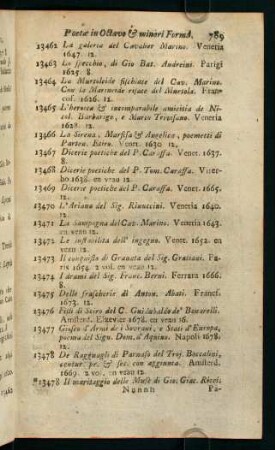 Poetæ in Octavo & minori Formâ. 789
13462 La galeria del Cavalier Marino. Venetia
1647. 12.
13463 Lo specchio, di Gio Bat. Andreini. Parigi
1625. 8.
13464 La Murtoleide fischiate del Cav. Marino.
Con la Marineide risate del Murtola. Franc
cof. 1626. 12.
13465 L'heroica & incomparabile amicitia de Ni-
col. Barbarigo, e Marco Trevisano. Venetia
1628. 12.
13466 La Sirena, Marfisa & Angelica, poemetti di
Parten. Etiro. Venet. 1630 12.
13467 Dicerie poetiche del P. Caraffa. Venet. 1637.
8.
13468 Dicerie poetiche del P. Tom. Caraffa. Viter-
bo 1638. en veau 12.
13469 Dicerie poetiche del P. Caraffa. Venet. 1655.
12.
13470 L'Ariana del Sig. Rinuccini. Venetia 1640.
12.
13471 La Sampogna del Cav. Marino. Venetia 1643.
en veau 12.
13472 Le instabilità dell' ingegno. Venet. 1652. en
veau 12.
13473 Il conquisto di Granata del Sig. Gratiani. Pa-
ris 1654. 2 vol. en veau 12.
13474 I drami del Sig. Franc. Berni. Ferrara 1666.
8.
13475 Delle frascherie di Anton. Abati. Francf.
1673. 12.
13476 Filli di Sciro del C. Guidubaldo de' Bonarelli.
Amsterd. Elzevier 1678. en veau 16.
13477 Giuoco d'Armi dei Sovrani, e Stati d'Europa,
poema del Sign. Dom. d'Aquino. Napoli 1678.
12.
13478 De Ragguagli di Parnaso del Troj. Boccalini,
centur. pr. & sec. con aggiunta. Amsterd.
1669. 2 vol. en veau 12.
*13478 Il maritaggio delle Muse di Gio. Giac. Ricci.
Nnnnn Pa-